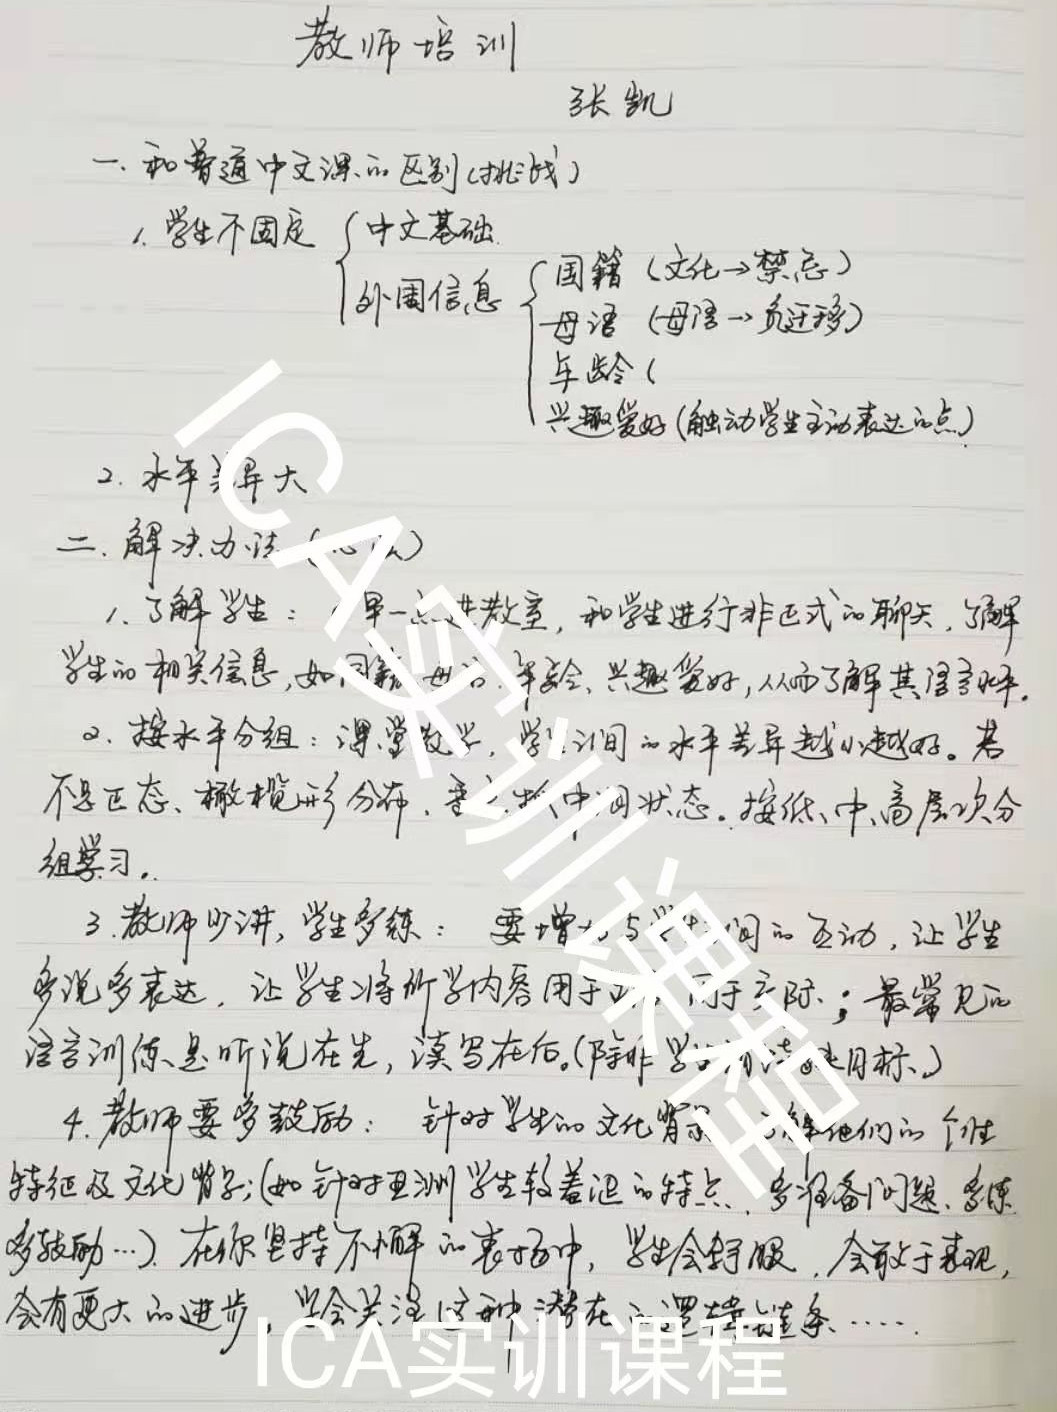 教师培训
张凯
一. 和普通中文课的区别(挑战)
1. 学生不固定 { 中文基础
外围信息 { 国籍 (文化→禁忌)
母语 (母语→负迁移)
年龄 (
兴趣爱好 (触动学生主动表达的点)
2. 水平差异大
二. 解决办法
1. 了解学生: 早一点进教室, 和学生进行非正式的聊天, 了解
学生的相关信息, 如国籍、母语、年龄、兴趣爱好, 从而了解其语言水平.
2. 按水平分组: 课堂教学, 学生间的水平差异越小越好。若
不是正态、橄榄形分布, 中间状态。按低、中、高层次分
组学习。
3. 教师少讲, 学生多练: 要增加与学生间的互动, 让学生
多说多表达, 让学生将所学内容用于 用于实际; 最常见的
语言训练是听说在先, 读写在后。(除非学生 目标。)
4. 教师要多鼓励: 针对学生的文化背景 了解他们的个性
特征及文化背景; (如针对亚洲学生较羞涩的特点, 多准备问题、多练
多鼓励…). 在你坚持不懈的表扬中, 学生会舒服, 会敢于表现,
会有更大的进步, 这种潜在的逻辑链条……
ICA实训课程
ICA实训课程